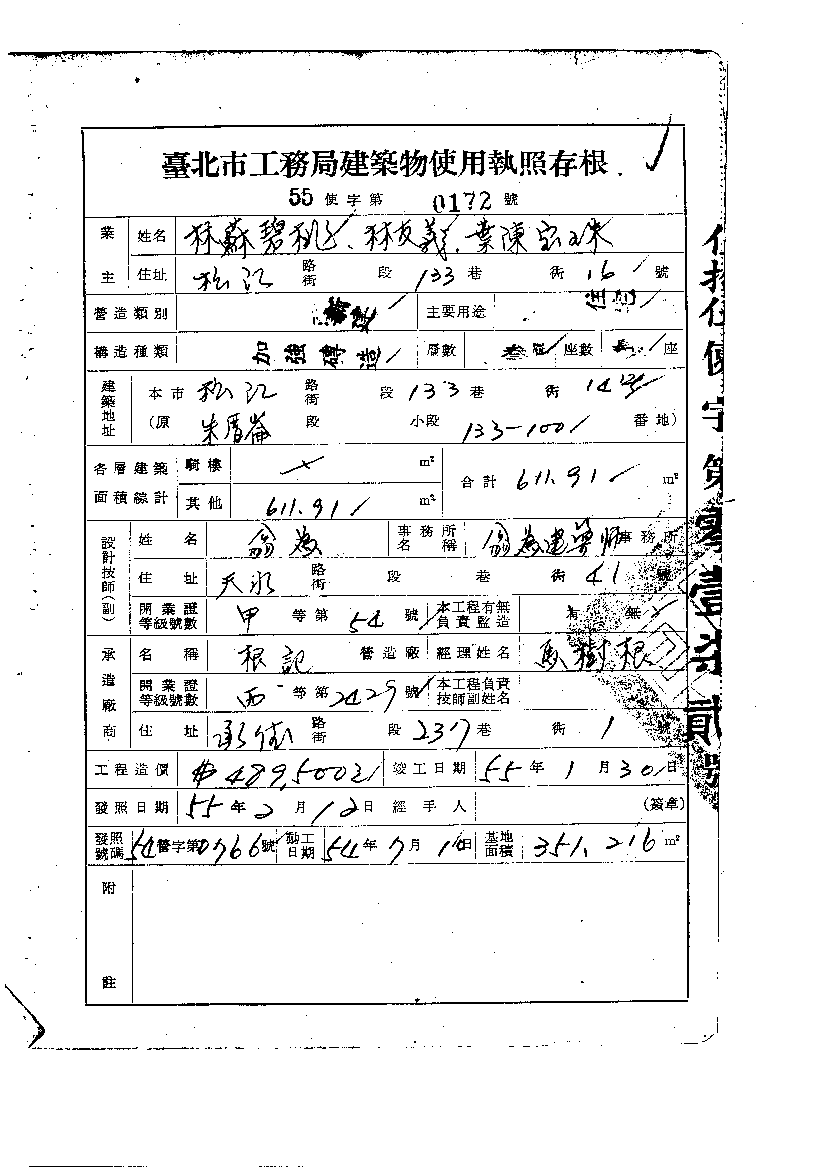 臺北市工務局建築物使用執照存根
55 使字第 0172 號
業主 姓名 林蘇碧桃、林友義、葉陳宏珠
住址 松江 路街 段 133 巷 街 16 號
營造類別 主要用途 住宅
構造種類 加強磚造 層數 座數 座
建築地址 本市 松江 路街 段 133 巷 街 14號
(原 朱厝崙 段 小段 133-100 番地)
各層建築面積總計 騎樓 m² 合計 611.91 m²
其他 611.91 m²
設計技師(副) 姓名 翁為 事務所名稱 翁為建築師事務所
住址 天水 路街 段 巷 街 41 號
開業證等級號數 甲 等第 54 號 本工程有無負責監造 有 無
承造廠商 名稱 根記 營造廠 經理姓名 樹根
開業證等級號數 丙 等第 2429 號 本工程負責技師副姓名
住址 承德 路街 段 237 巷 街 1 號
工程造價 489,500 竣工日期 55 年 1 月 30 日
發照日期 55 年 2 月 12 日 經手人 (簽章)
發照號碼 54 營字第 0766 號 動工日期 54 年 7 月 1 日 基地面積 351.216 m²
附註
使字第零壹柒貳號